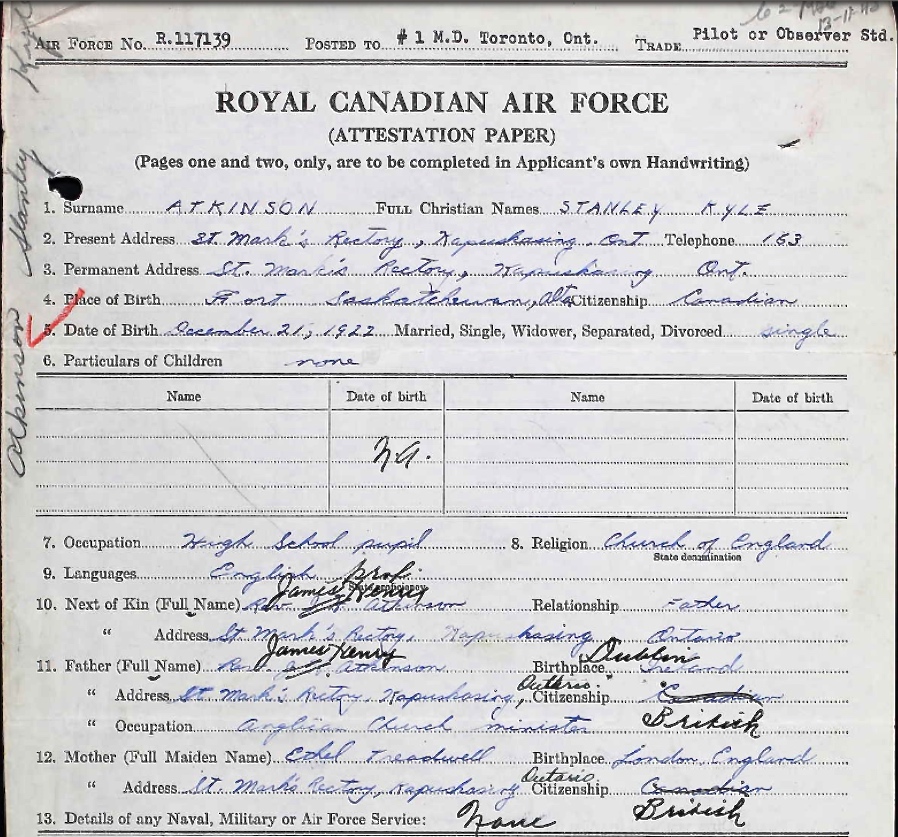 13-11-40
AIR FORCE No. R.117139 POSTED TO #1 M.D. Toronto, Ont. TRADE Pilot or Observer Std.
ROYAL CANADIAN AIR FORCE
(ATTESTATION PAPER)
(Pages one and two, only, are to be completed in Applicant's own Handwriting)
Atkinson Stanley Kyle
1. Surname ATKINSON FULL Christian Names STANLEY KYLE
2. Present Address St. Mark's Rectory, Kapuskasing Ont Telephone 163
3. Permanent Address St. Mark's Rectory, Kapuskasing Ont.
4. Place of Birth Fort Saskatchewan, Alta Citizenship Canadian
5. Date of Birth December 21, 1922 Married, Single, Widower, Separated, Divorced single
6. Particulars of Children none
Name Date of birth Name Date of birth
N.A.
7. Occupation High School pupil 8. Religion Church of England
State denomination
9. Languages English prof.
State proficiency
James Henry
10. Next of Kin (Full Name) Rev. J. H. Atkinson Relationship Father
" Address St Mark's Rectory, Kapuskasing Ontario
James Henry Dublin
11. Father (Full Name) Rev. J. H. Atkinson Birthplace Ireland
" Address St Mark's Rectory, Kapuskasing, Ontario. Citizenship Canadian
" Occupation Anglican Church minister British
12. Mother (Full Maiden Name) Ethel Treadwell Birthplace London, England
" Address St. Mark's Rectory, Kapuskasing Ontario Citizenship Canadian
13. Details of any Naval, Military or Air Force Service: None British